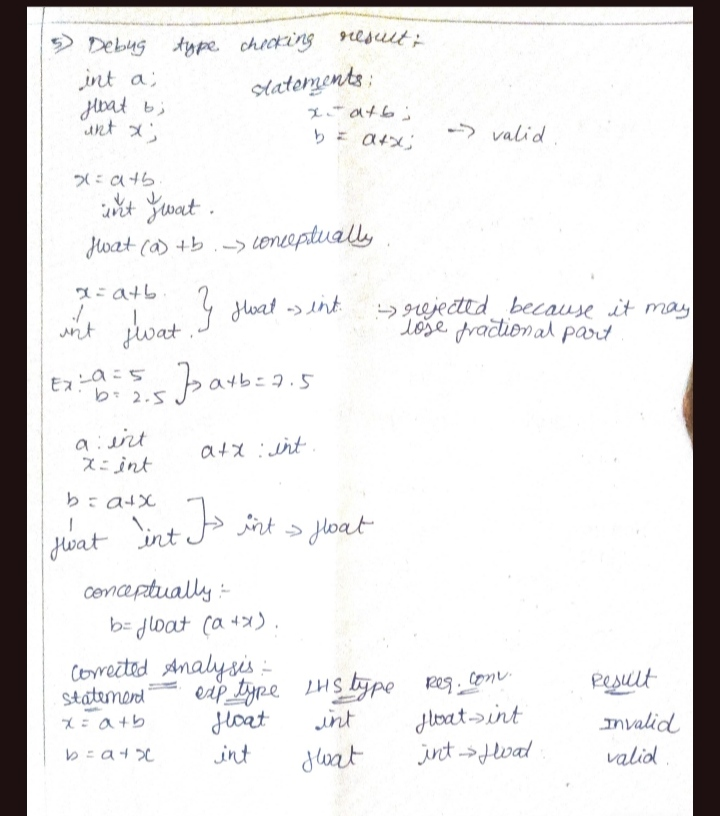 5) Debug type checking result :-
int a;
float b;
int x;
statements :
x = a+b ;
b = a+x; -> valid.
x = a+b.
int float.
float (a) +b. -> conceptually.
x = a+b. } float -> int. :-> rejected because it may
int float. lose fractional part
Ex:- a = 5
b = 2.5 } -> a+b = 7.5
a : int
x = int a+x : int.
b = a+x
float int ] -> int -> float
conceptually :-
b = float (a +x).
Corrected Analysis :-
statement exp type LHS type Req. conv. Result
x = a+b float int float->int Invalid
b = a+x int float int->float valid.